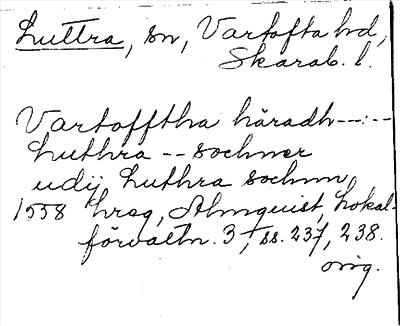 Luttra, sn, Vartofta hd,
Skarab. l.
Vartofftha häradh --:--
Luthra -- sochner
udij Luthra sochnn
1558 hrag, Almquist, Lokal-
förvaltn. 3, ss. 237, 238.
orig.